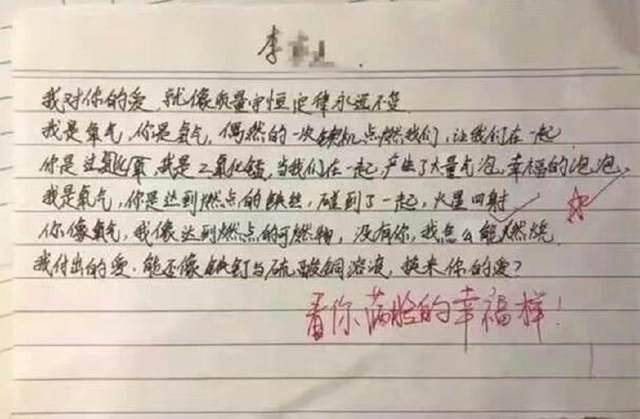 李
我对你的爱，就像质量守恒定律永远不变
我是氧气，你是氢气，偶然的一次契机点燃我们，让我们在一起
你是过氧化氢，我是二氧化锰，当我们在一起，产生了大量气泡，幸福的泡泡，
我是氧气，你是达到燃点的铁丝，碰到了一起，火星四射
你像氧气，我像达到燃点的可燃物，没有你，我怎么能燃烧
我付出的爱，能否像铁钉与硫酸铜溶液，换来你的爱？
看你满脸的幸福样！